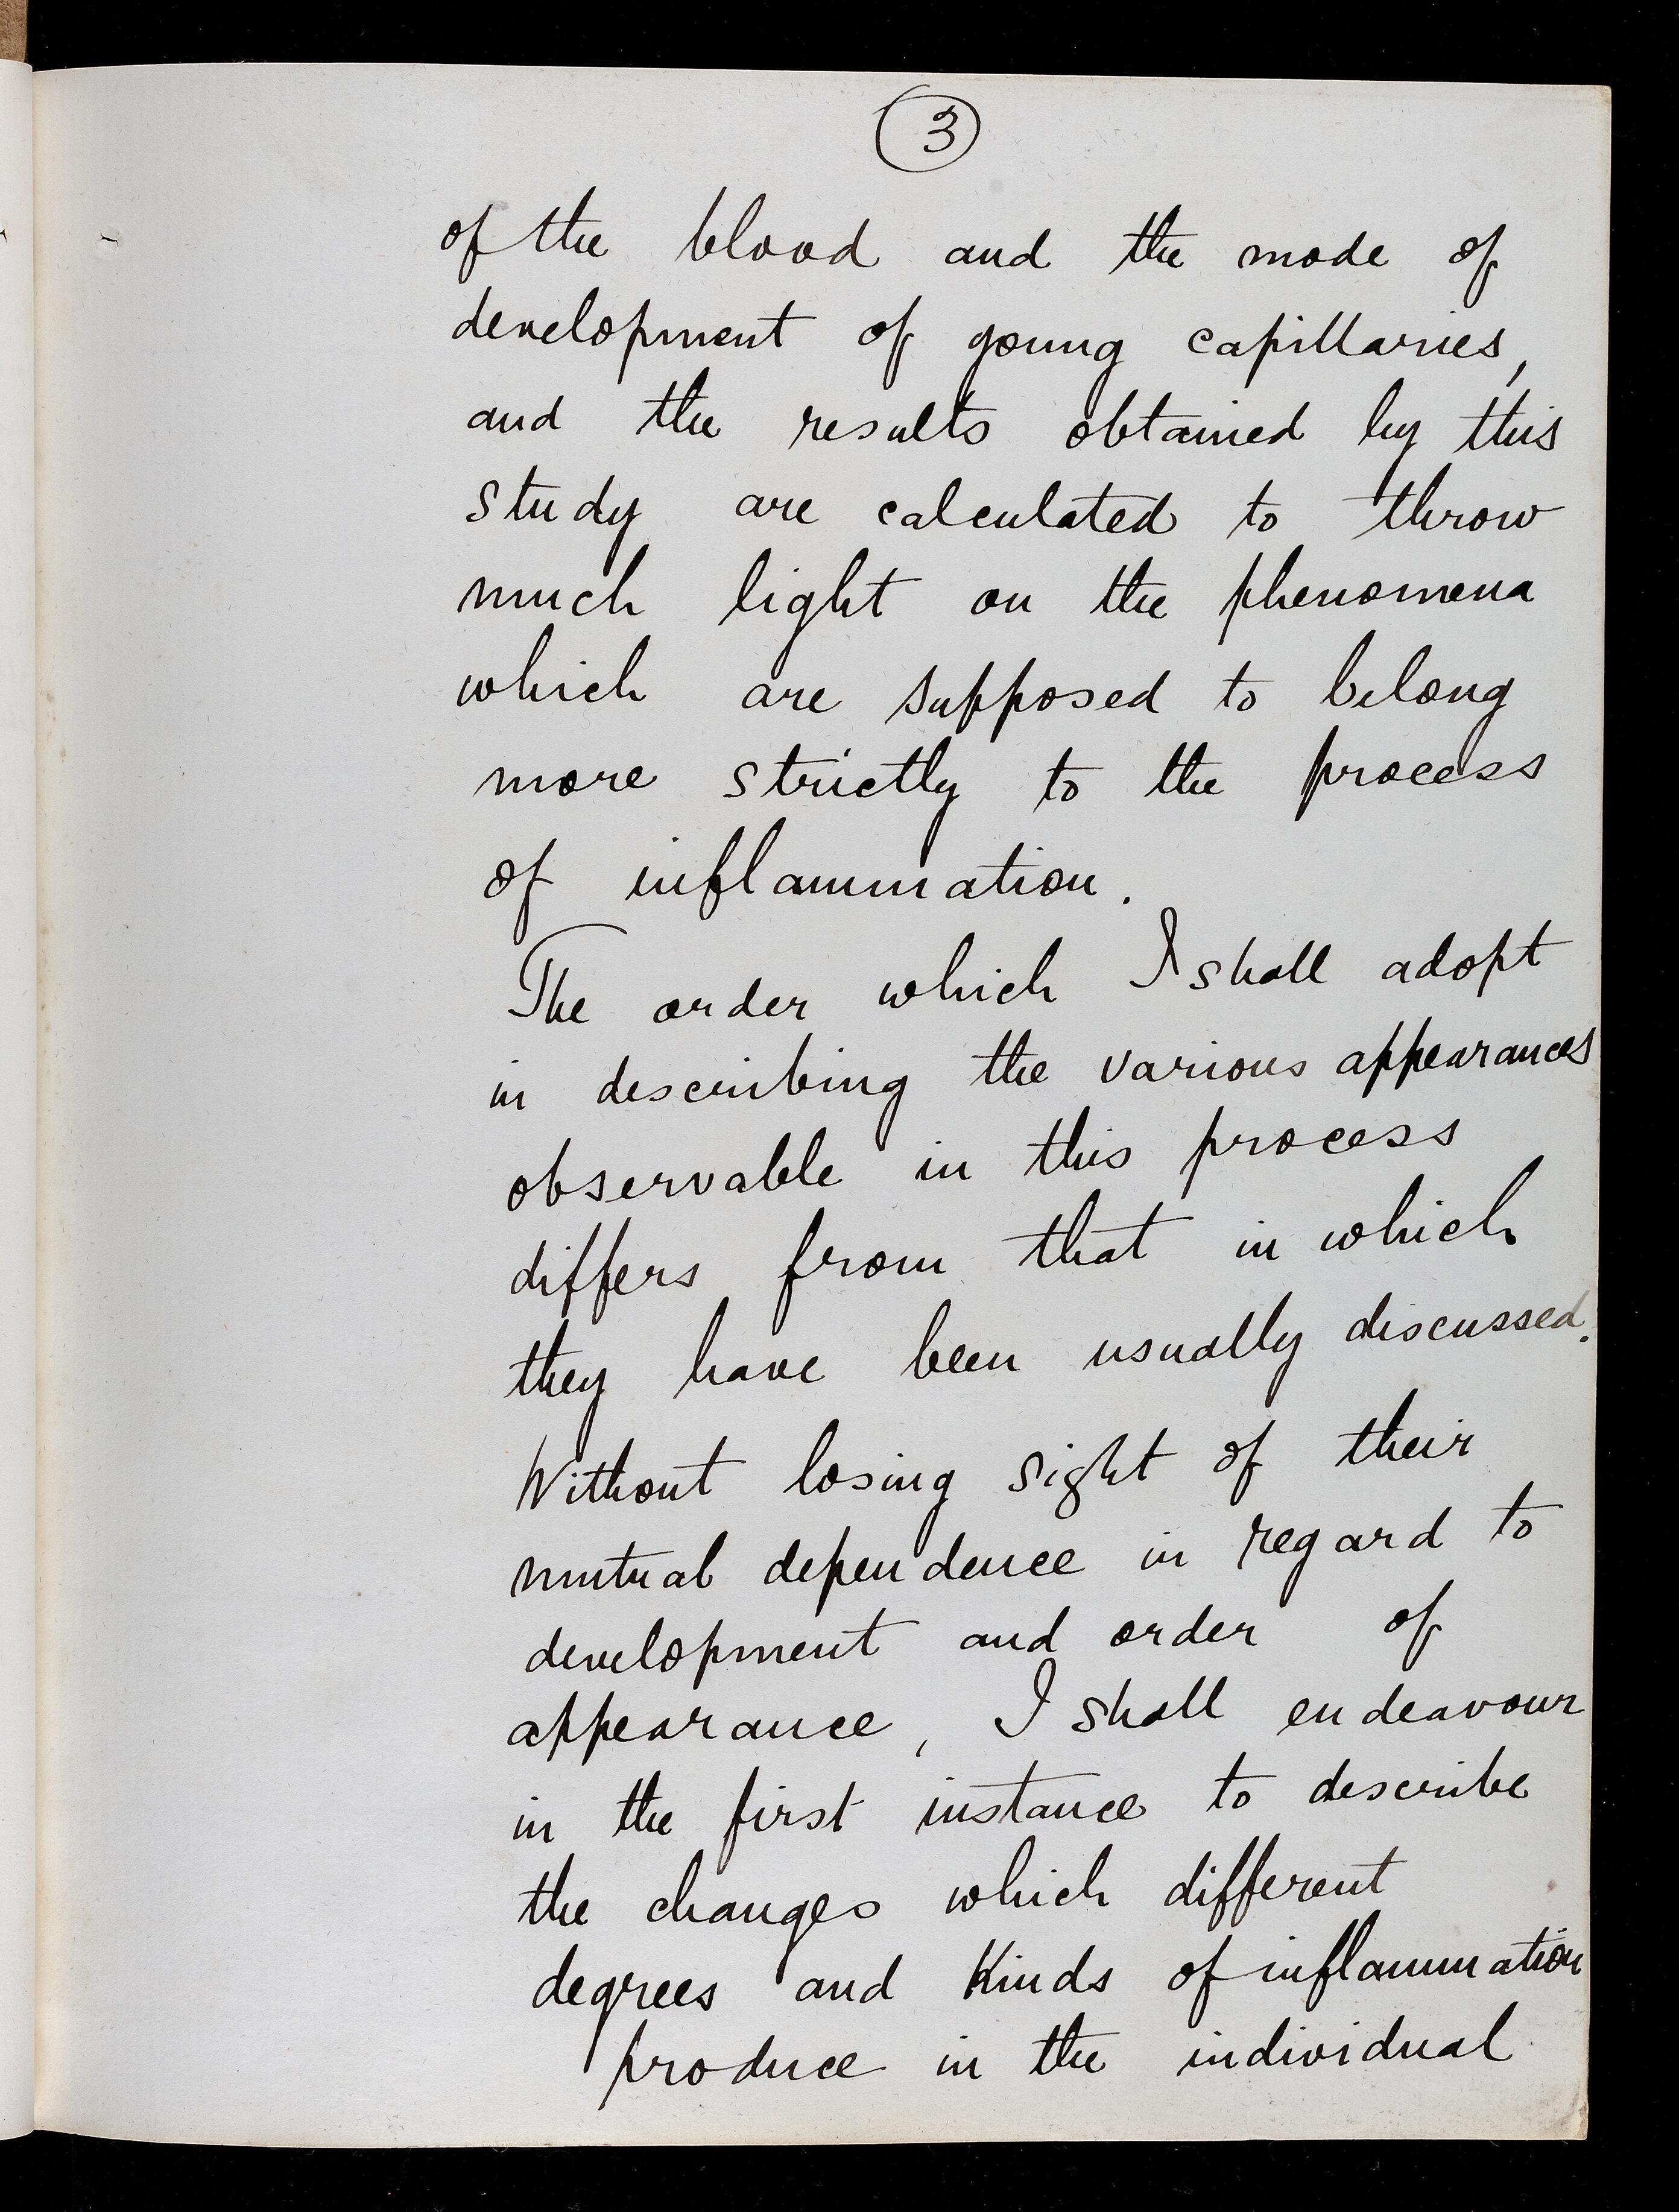 3
of the blood and the mode of
development of young capillaries,
and the results obtained by this
study are calculated to throw
much light on the phenomena
which are supposed to belong
more strictly to the process
of inflammation.
The order which I shall adopt
in describing the various appearances
observable in this process
differs from that in which
they have been usually discussed.
Without losing sight of their
mutual dependence in regard to
development and order of
appearance, I shall endeavour
in the first instance to describe
the changes which different
degrees and Kinds of inflammation
produce in the individual